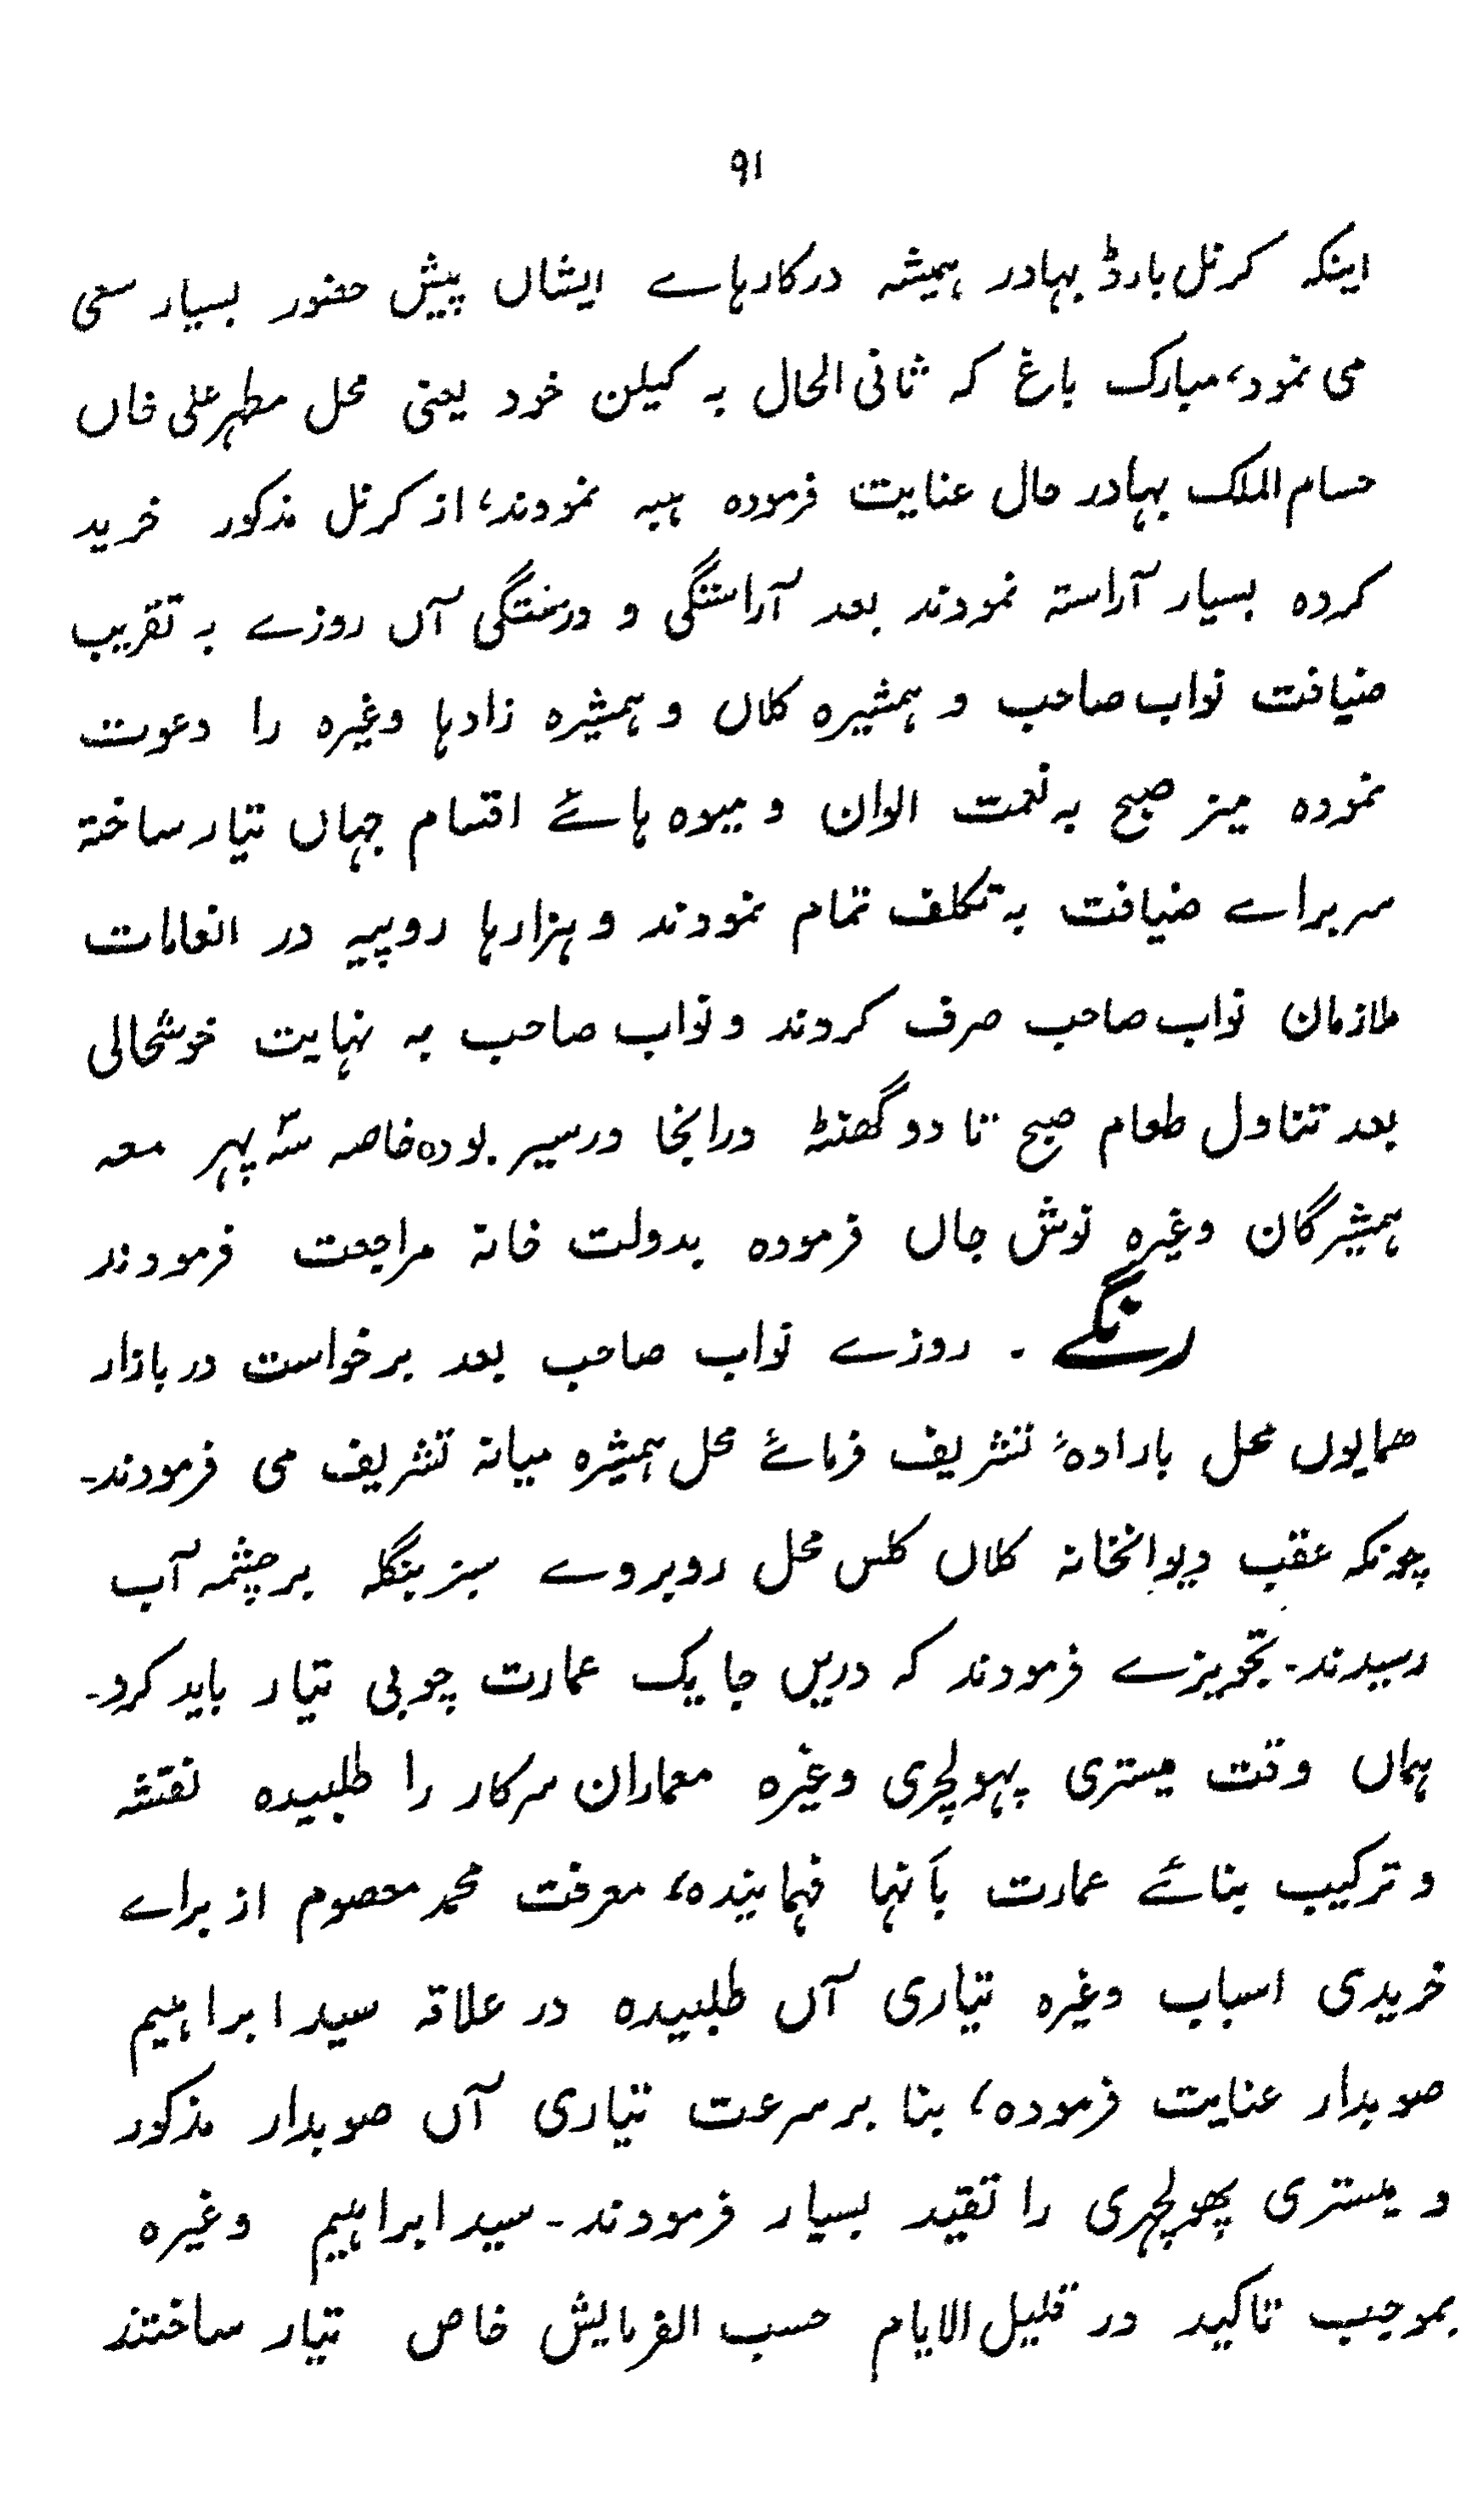 ۹۱
اینکہ کرنل بارڈ بہادر ہمیشہ درکارہاے ایشاں پیش حضور بسیار سعی
می نمود، مبارک باغ کہ ثانی الحال بہ کیلن خود یعنی محل مطہر علی خاں
حسام الملک بہادر حال عنایت فرمودہ ہبہ نمودند، از کرنل مذکور خرید
کردہ بسیار آراستہ نمودند بعد آراستگی و درستگی آں روزے بہ تقریب
ضیافت نواب صاحب و ہمشیرہ کلاں و ہمشیرہ زادہا وغیرہ را دعوت
نمودہ میز صبح بہ نعمت الوان و میوہ ہائے اقسام جہاں تیار ساختہ
سربراے ضیافت بہ تکلف تمام نمودند و ہزارہا روپیہ در انعامات
ملازمان نواب صاحب صرف کردند و نواب صاحب بہ نہایت خوشحالی
بعد تناول طعام صبح تا دو گھنٹہ درانجا درسیر بودہ خاصہ سہ پہر معہ
ہمشیرگان وغیرہ نوش جاں فرمودہ بدولت خانہ مراجعت فرمودند
رنگے ۔ روزے نواب صاحب بعد برخواست دربازار
ھمایوں محل بارادۂ تشریف فرمائے محل ہمشیرہ میانہ تشریف می فرمودند۔
چونکہ عقب دیوانخانہ کلاں کلس محل روبروے سبز بنگلہ برچشمہ آب
رسیدند۔ تجویزے فرمودند کہ دریں جا یک عمارت چوبی تیار باید کرد۔
ہماں وقت میستری پہولچری وغیرہ معماران سرکار را طلبیدہ نقشہ
و ترکیب بنائے عمارت بآنہا فہمانیدہ، معرفت محمد معصوم از براے
خریدی اسباب وغیرہ تیاری آں طلبیدہ در علاقہ سید ابراہیم
صوبدار عنایت فرمودہ، بنا بر سرعت تیاری آں صوبدار مذکور
و میستری پھولچری را تقید بسیار فرمودند۔ سید ابراہیم وغیرہ
بموجب تاکید در قلیل الایام حسب الفرمایش خاص تیار ساختند